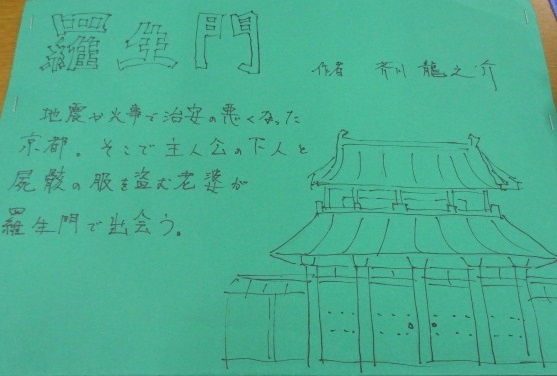 羅生門
作者 芥川龍之介
地震や火事で治安の悪くなった
京都。そこで主人公の下人と
屍骸の服を盗む老婆が
羅生門で出会う。